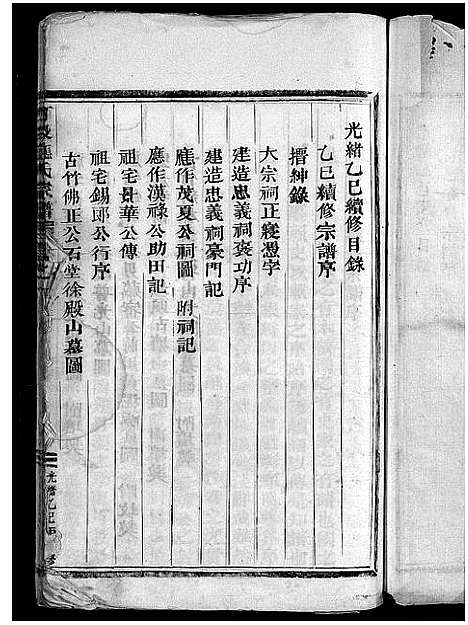 光緒乙巳續修目錄
乙巳續修宗譜序
搢紳錄
大宗祠正寢憑字
建造忠義祠褒功序
建造忠義祠豪門記
應作茂夏公祠圖 附祠記
應作漢祿公助田記
祖宅廿華公傳
祖宅錫郎公行序
古竹佛正公石堂徐殿山墓圖
應氏宗譜
光緒乙巳